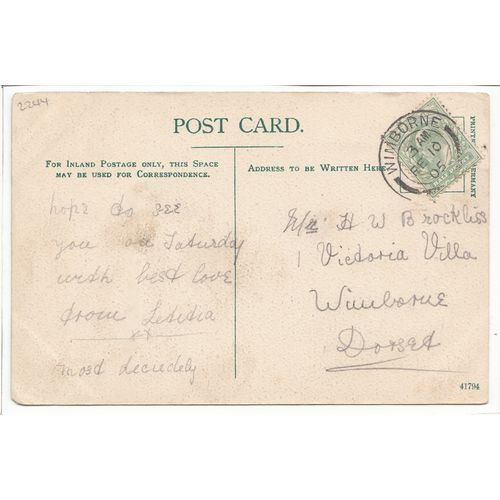 2244
POST CARD.
FOR INLAND POSTAGE ONLY, THIS SPACE
MAY BE USED FOR CORRESPONDENCE.
ADDRESS TO BE WRITTEN HERE
WIMBORNE
3 AM
FE 10
PRINTED
GERMANY
hope to see
you on Saturday
with best love
from Letitia
xx
most decidely
H W Brockliss
1 Victoria Villa
Wimborne
Dorset
41794